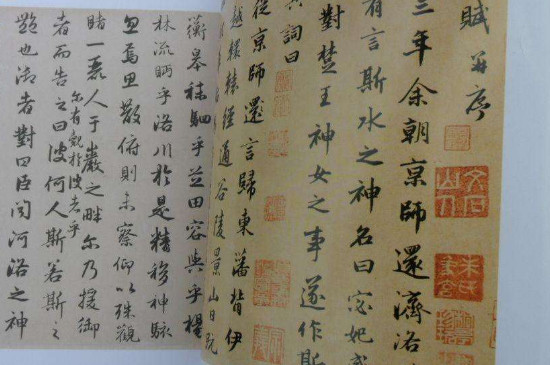 賦并序
三年余朝京師還濟洛
有言斯水之神名曰宓妃感
對楚王神女之事遂作斯
其詞曰
從京師還言歸東藩背伊
越轘轅經通谷陵景山日既
衡皋秣駟乎芝田容與乎楊
林流眄乎洛川於是精移神駭
忽焉思散俯則未察仰以殊觀
睹一麗人于巖之畔尔乃援御
尔有覿於彼者乎
者而告之曰彼何人斯若斯之
艷也御者對曰臣聞河洛之神